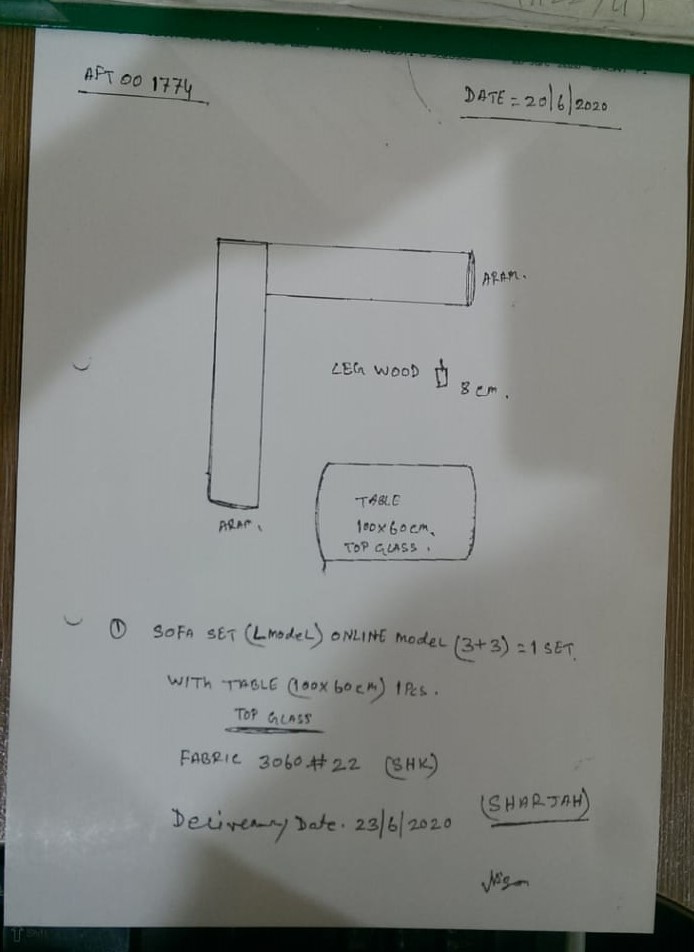 AFT 00 1774
DATE = 20/6/2020
ARAM.
LEG WOOD 8 cm.
TABLE
100x60cm.
TOP GLASS.
ARAM.
① SOFA SET (L MODEL) ONLINE MODEL (3+3) = 1 SET.
WITH TABLE (100x60cm) 1 Pcs.
TOP GLASS
FABRIC 3060 # 22 (SHK)
(SHARJAH)
Deliverary Date. 23/6/2020